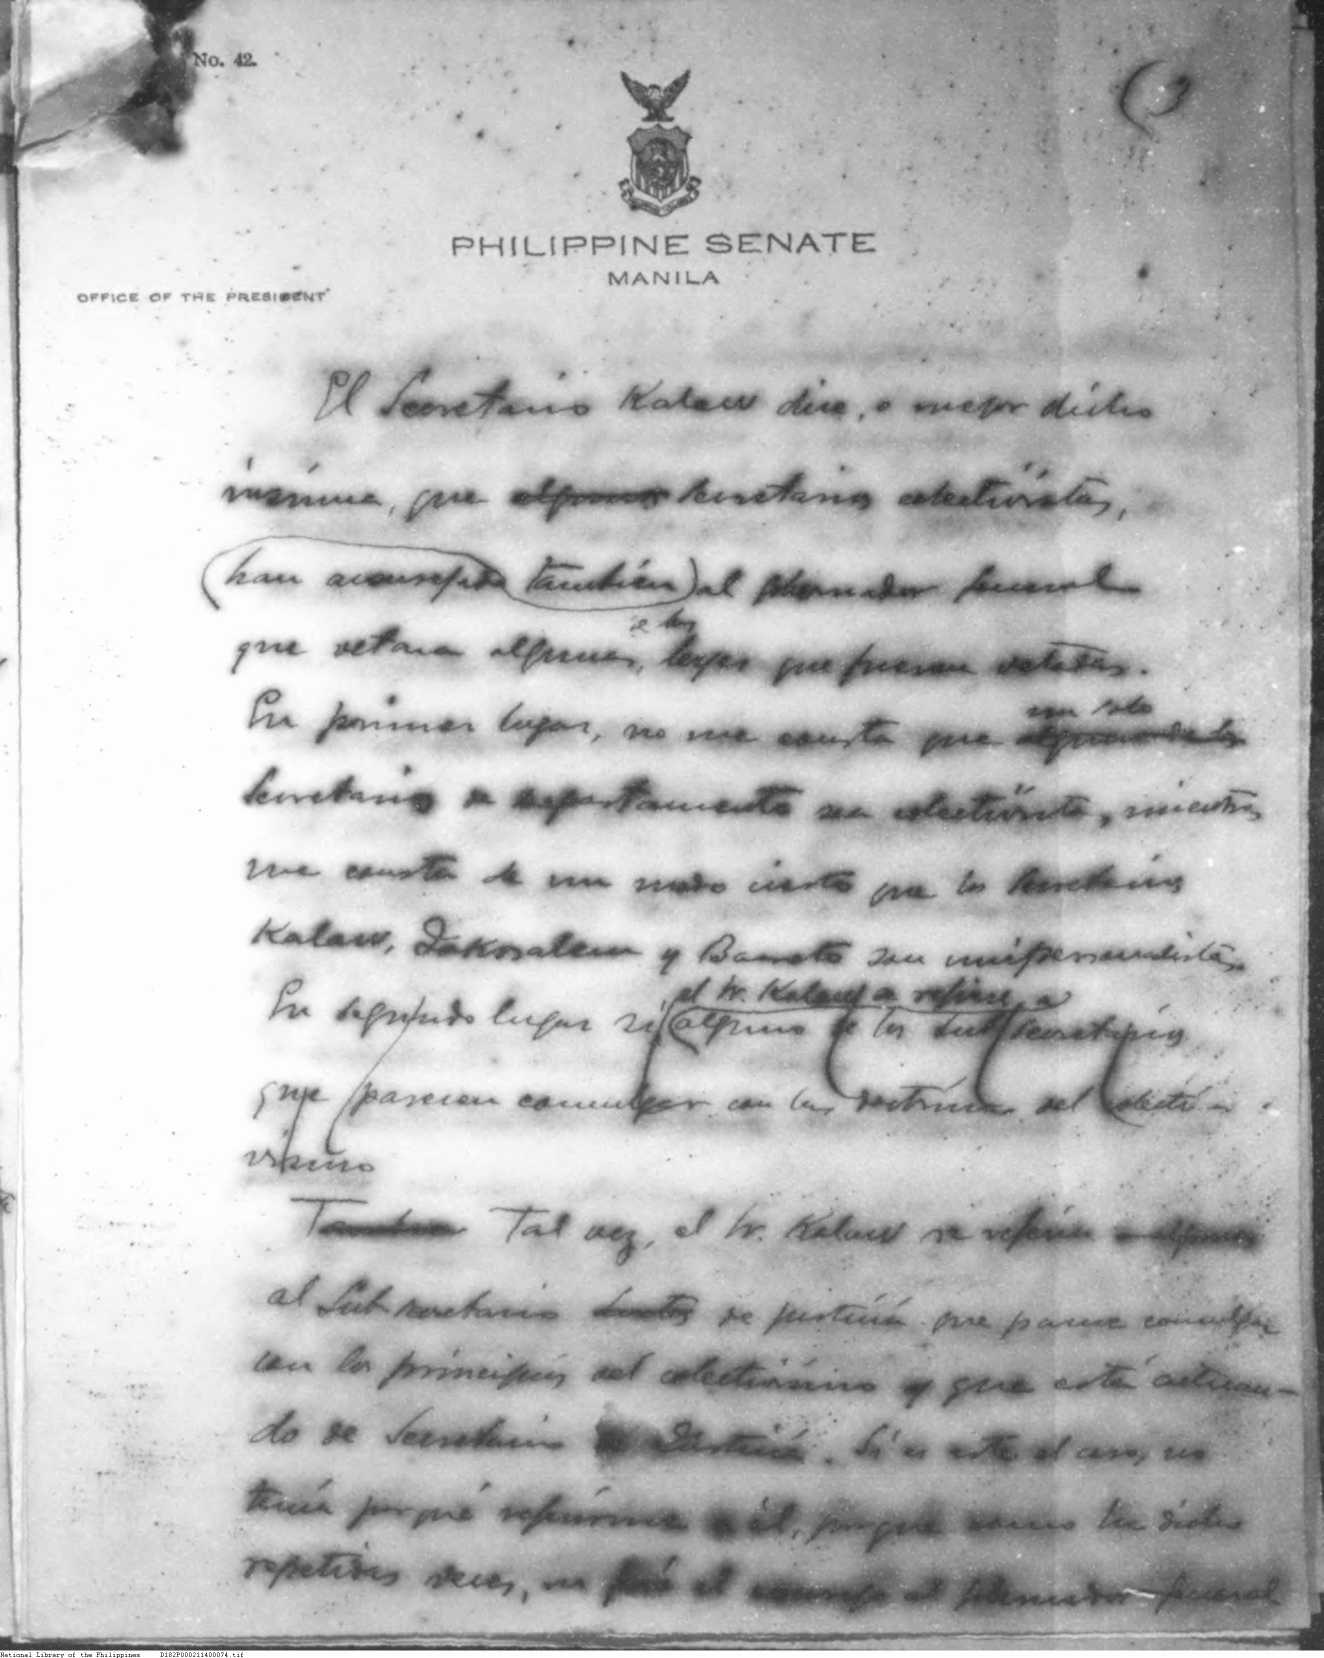 No. 42.
PHILIPPINE SENATE
MANILA
OFFICE OF THE PRESIDENT
El Secretario Kalaw dice, o mejor dicho
insinua, que algunos secretarios colectivistas,
han aconsejado también al gobernador general
que vetara algunas, de las leyes que fueron vetadas.
En primer lugar, no me consta que un solo
Secretario de departamento sea colectivista, mientras
me consta de un modo cierto que los secretarios
Kalaw, Dakosalem y Barreto son unipersonalistas.
el Sr. Kalaw se refiere a
En segundo lugar si alguno de los Subsecretarios
que parecen comulgar con las doctrinas del colecti-
vismo
Tal vez, el Sr. Kalaw se refería
al Subsecretario de justicia que parece comulgar
con los principios del colectivismo y que está actuan-
do de Secretario de Justicia. Si es este el caso, no
tenía porqué referirme a él, porque como he dicho
repetidas veces, no el consejo al gobernador general